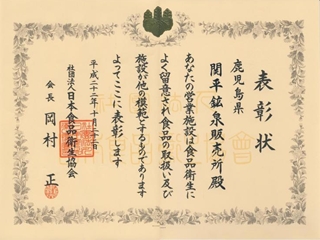 表彰状
鹿児島県
関平鉱泉販売所殿
あなたの営業施設は食品衛生に
よく留意され食品の取扱い及び
施設が他の模範とするものであります
よってここに表彰します
平成二十二年十月二十二日
社団法人日本食品衛生協会
会長 岡村正